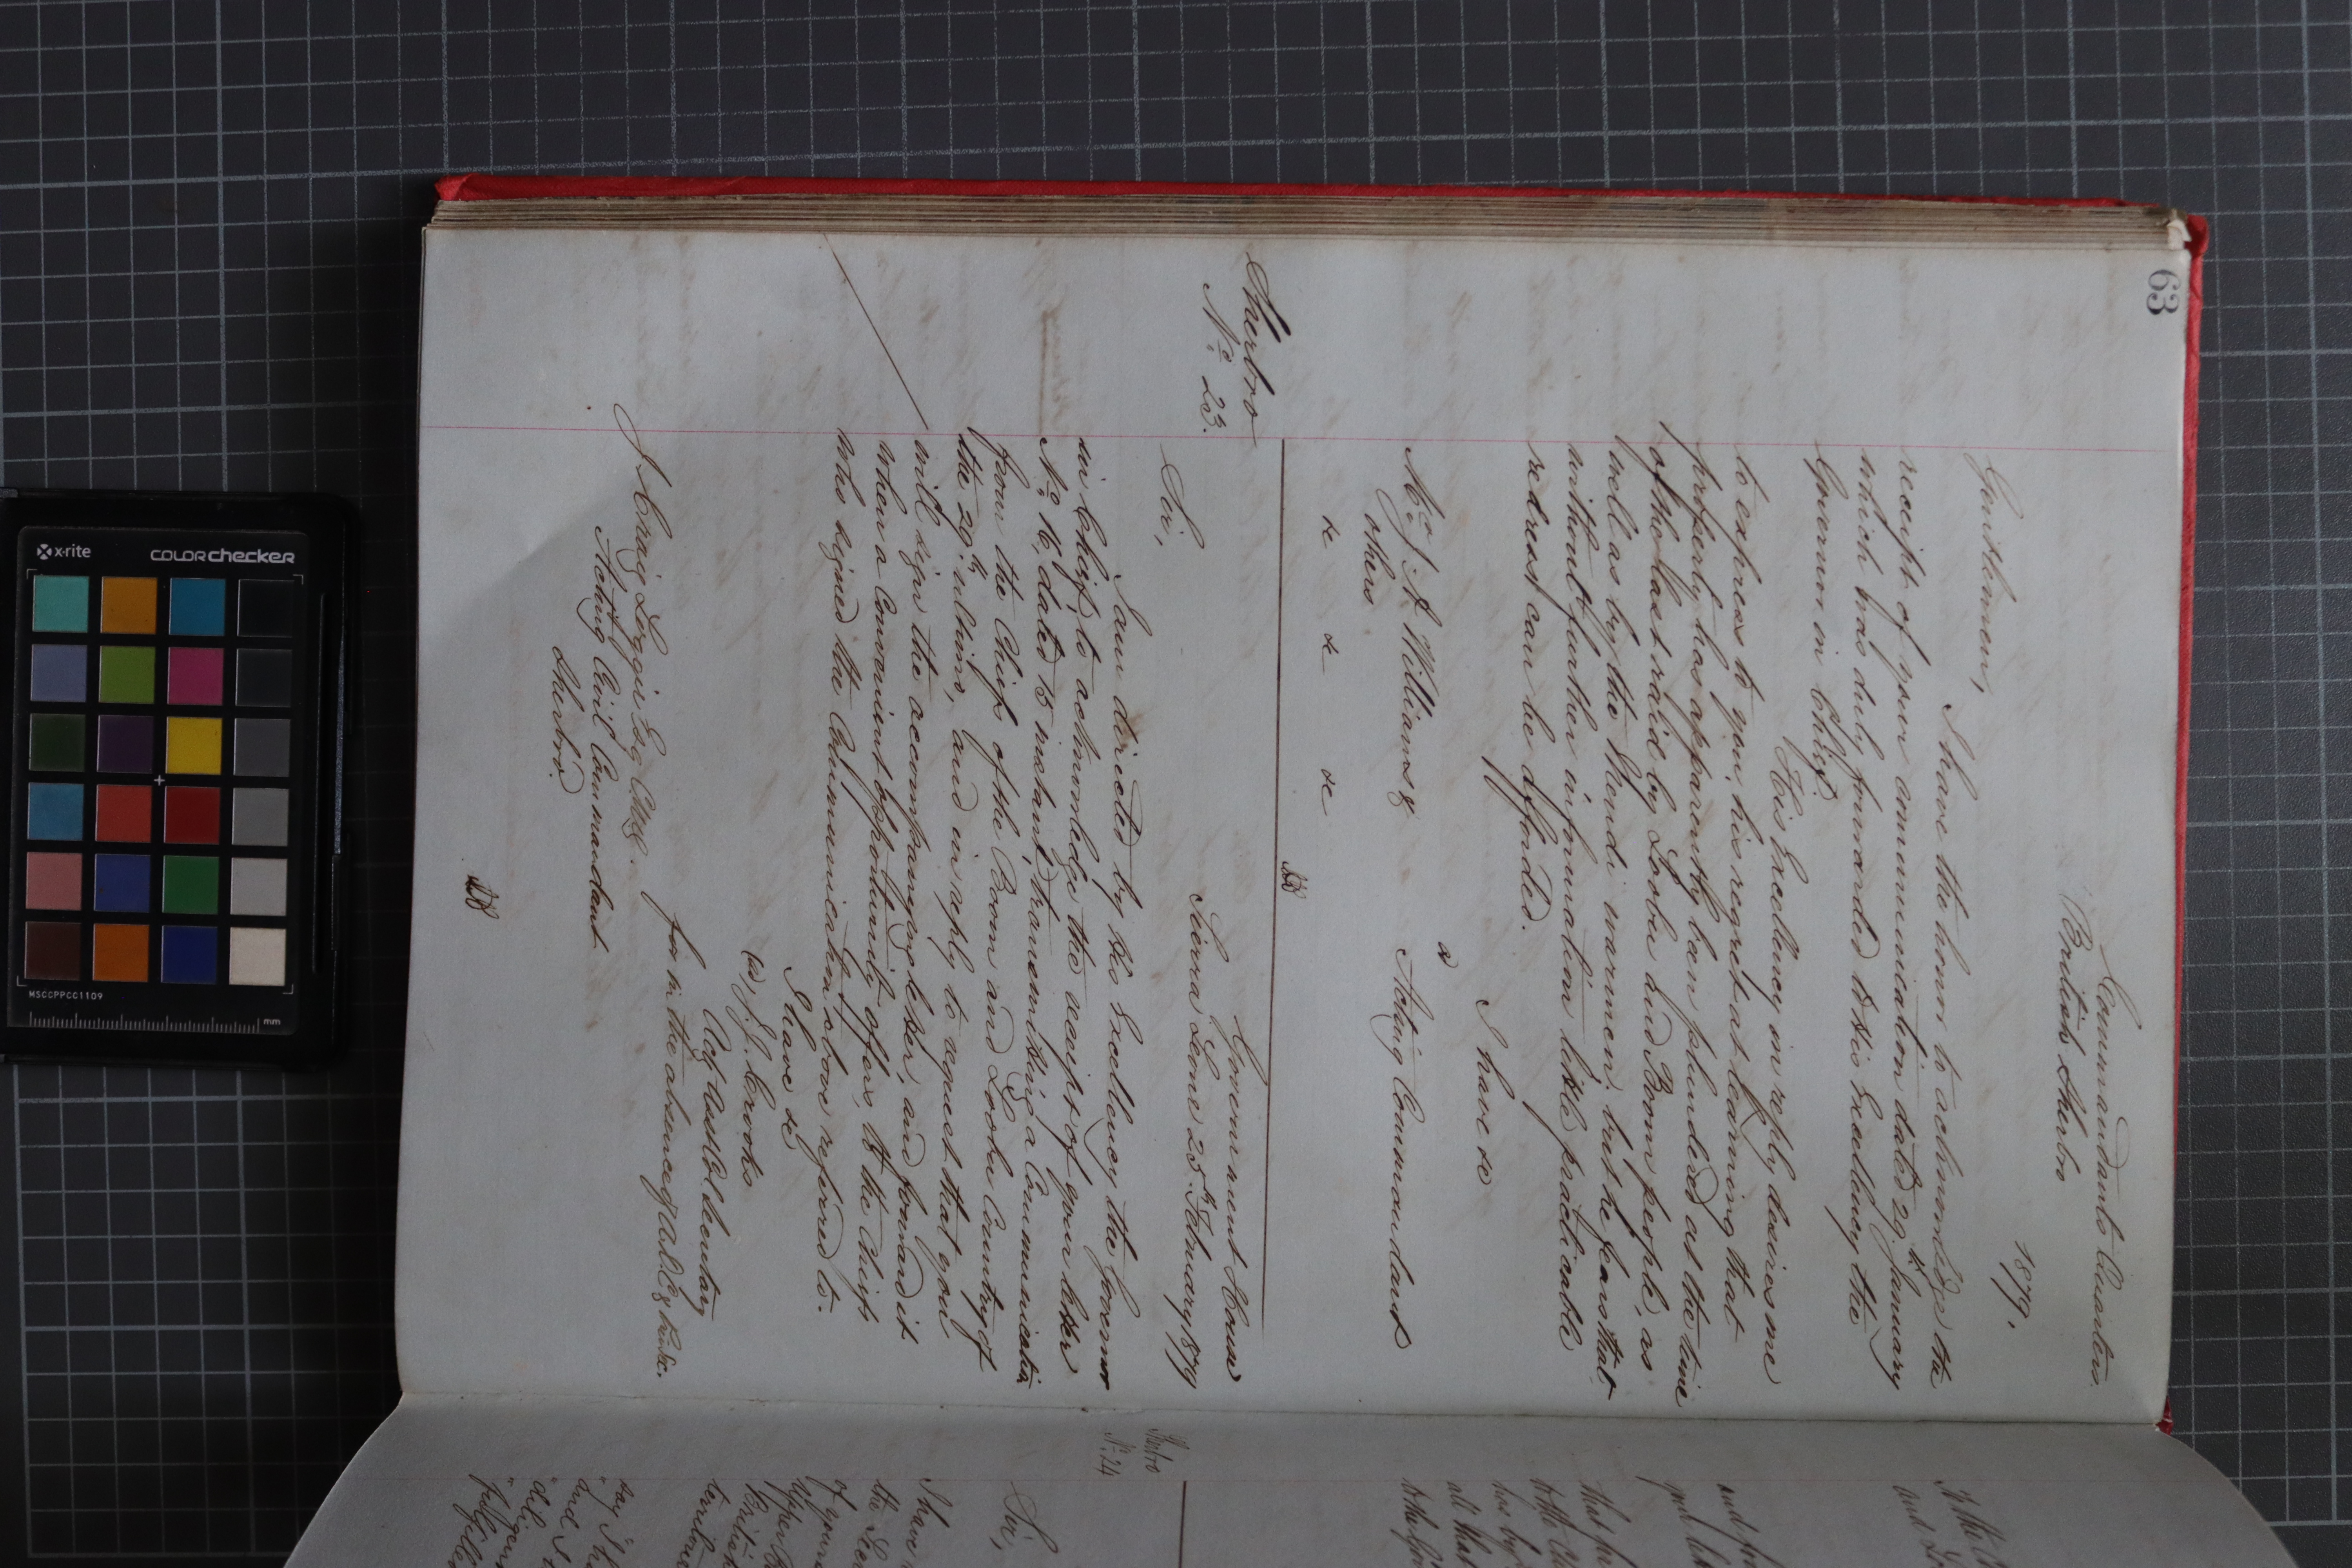 63
Commandants Quarters
British Sherbro
1879.
Gentlemen,
I have the honor to acknowledge the
receipt of your communication dated 29th January
which was duly forwarded to His Excellency the
Governor in Chief.
His Excellency in reply desires me
to express to you, his regret at learning that
property has apparently been plundered at the time
of the last raid by Looboo and Boom people, as
well as by the Mendi warmen; but he fears that
without further information little practicable
redress can be afforded.
I have &c
Acting Commandant
Williams &
others
&c &c &c
Sherbro
No. 23.
Government House
Sierra Leone 25th February 1879
Sir,
I am directed by His Excellency the Governor
in Chief, to acknowledge the receipt of your letter
No. 16, dated 15 instant, transmitting a Communication
from the Chiefs of the Boom and Looboo Country of
the 29th ultimo, and in reply to request that you
will sign the accompanying letter, and forward it
when a Convenient opportunity offers, to the Chiefs
who signed the Communication above referred to.
I have &c
(s) J. J. Crooks
Actg Asst Col. Secretary
for in the absence of
J Craig Loggie Esq
Acting Civil Commandant
Sherbro
Sherbro
No. 24
Sir,
I have
of your
Upper
British